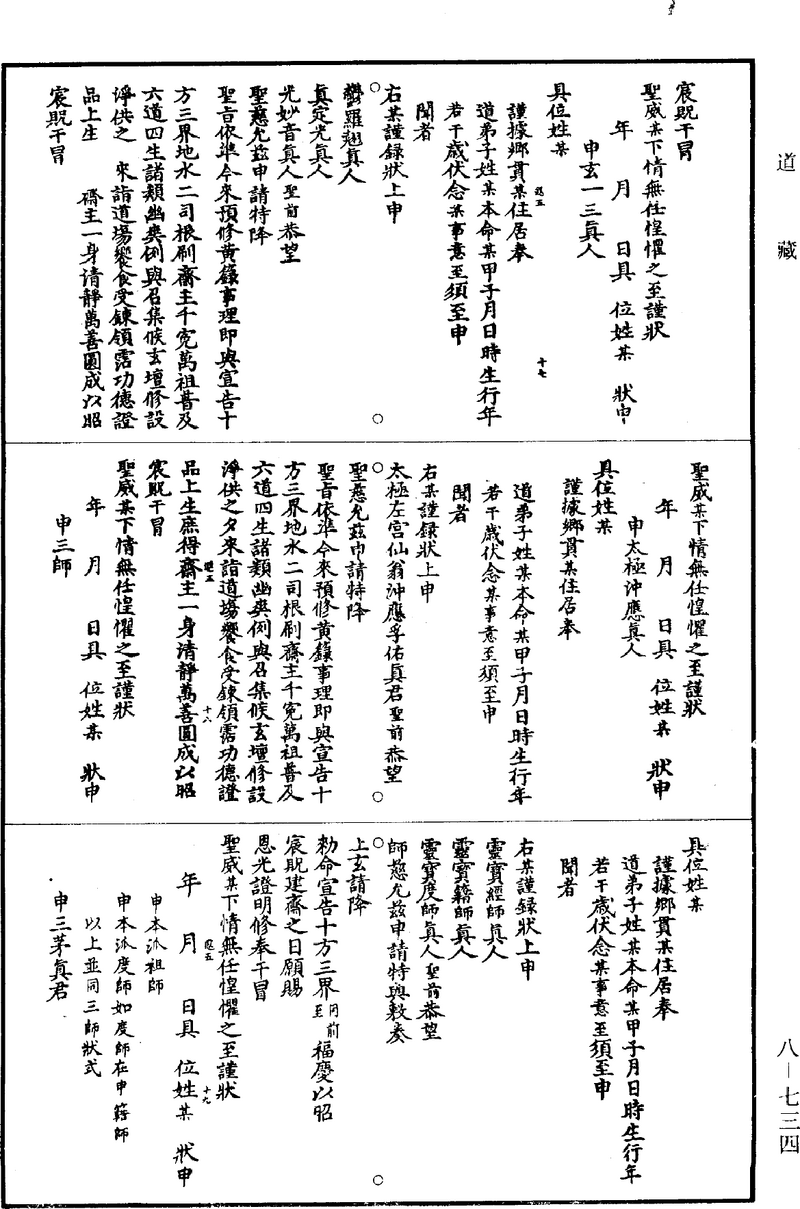 道藏
宸貺干冒
聖威某下情無任惶懼之至謹狀
年 月 日具 位姓某 狀申
申玄一三真人
具位姓某
謹據鄉貫某住居奉
道弟子姓某本命某甲子月日時生行年
若干歲伏念某事意至須至申
聞者
右某謹錄狀上申
鬱羅翹真人
真定光真人
光妙音真人聖前恭望
聖慈允茲申請特降
聖旨依準今來預修黃籙事理即與宣告十
方三界地水二司根刷齋主千冤萬祖普及
六道四生諸類幽爽例與召集候玄壇修設
淨供之 來詣道場饗食受鍊領霑功德證
品上生 齋主一身清靜萬善圓成以昭
宸貺干冒
十七
聖威某下情無任惶懼之至謹狀
年 月 日具 位姓某 狀申
申太極沖應真人
具位姓某
謹據鄉貫某住居奉
道弟子姓某本命某甲子月日時生行年
若干歲伏念某事意至須至申
聞者
右某謹錄狀上申
太極左宮仙翁沖應孚佑真君聖前恭望
聖慈允茲申請特降
聖旨依準今來預修黃籙事理即與宣告十
方三界地水二司根刷齋主千冤萬祖普及
六道四生諸類幽爽例與召集候玄壇修設
淨供之夕來詣道場饗食受鍊領霑功德證
品上生庶得齋主一身清靜萬善圓成以昭
十八
宸貺干冒
聖威某下情無任惶懼之至謹狀
年 月 日具 位姓某 狀申
申三師
具位姓某
謹據鄉貫某住居奉
道弟子姓某本命某甲子月日時生行年
若干歲伏念某事意至須至申
聞者
右某謹錄狀上申
靈寶經師真人
靈寶籍師真人
靈寶度師真人聖前恭望
師慈允茲申請特與敷奏
上玄請降
勑命宣告十方三界同前至福慶以昭
宸貺建齋之日願賜
恩光證明修奉干冒
聖威某下情無任惶懼之至謹狀
十九
年 月 日具 位姓某 狀申
申本派祖師
申本派度師如度師在申籍師
以上並同三師狀式
申三茅真君
八－七三四